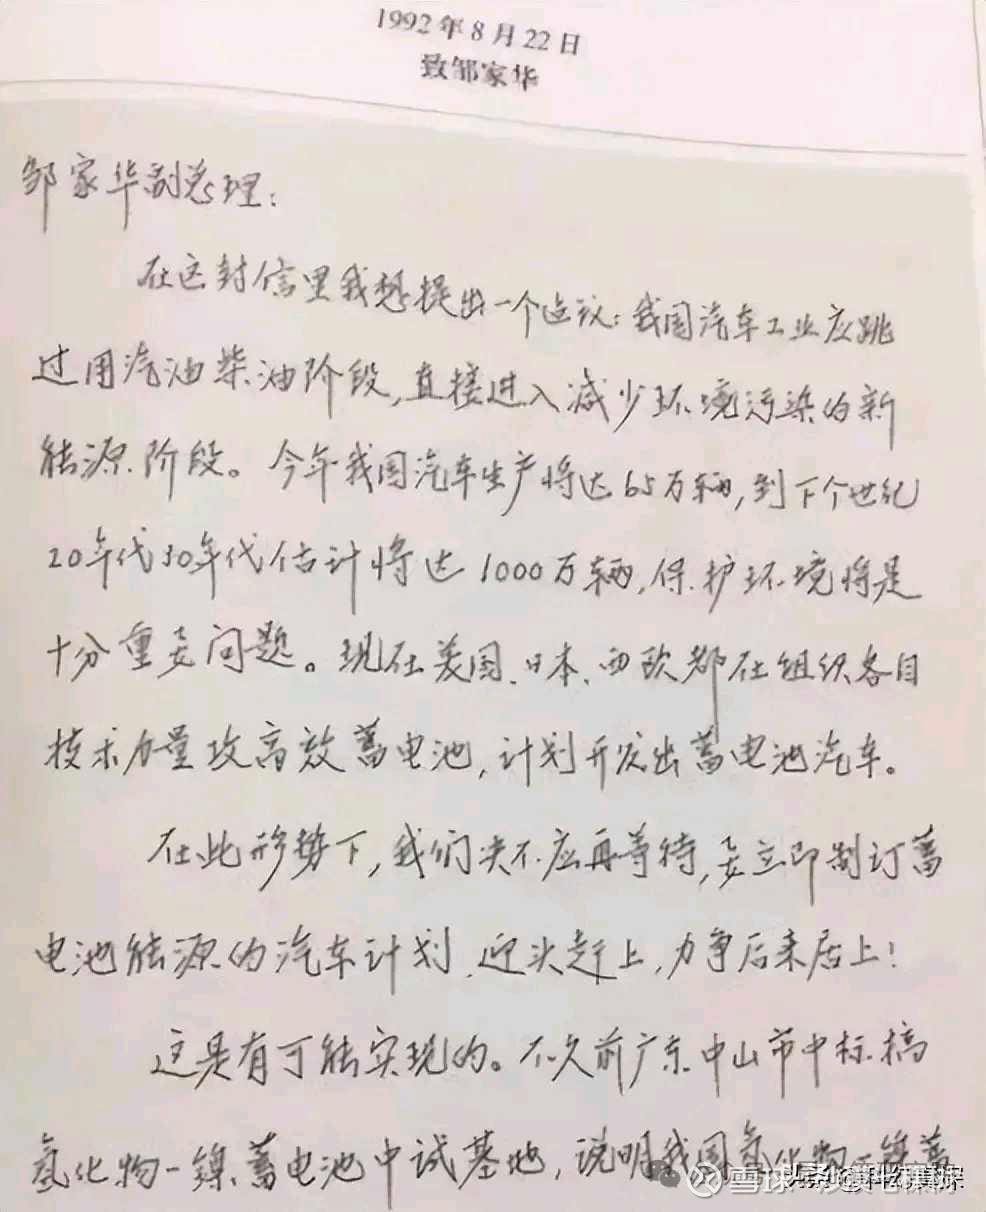 1992年8月22日
致邹家华
邹家华副总理：
在这封信里我想提出一个建议：我国汽车工业应跳
过用汽油柴油阶段，直接进入减少环境污染的新
能源阶段。今年我国汽车生产将达65万辆，到下个世纪
20年代30年代估计将达1000万辆，保护环境将是
十分重要问题。现在美国、日本、西欧都在组织各自
技术力量攻高效蓄电池，计划开发出蓄电池汽车。
在此形势下，我们决不应再等待，要立即制订蓄
电池能源的汽车计划，迎头赶上，力争后来居上！
这是有可能实现的。不久前广东中山市中标搞
氢化物-镍蓄电池中试基地，说明我国氢化物-镍蓄
雪球
头条